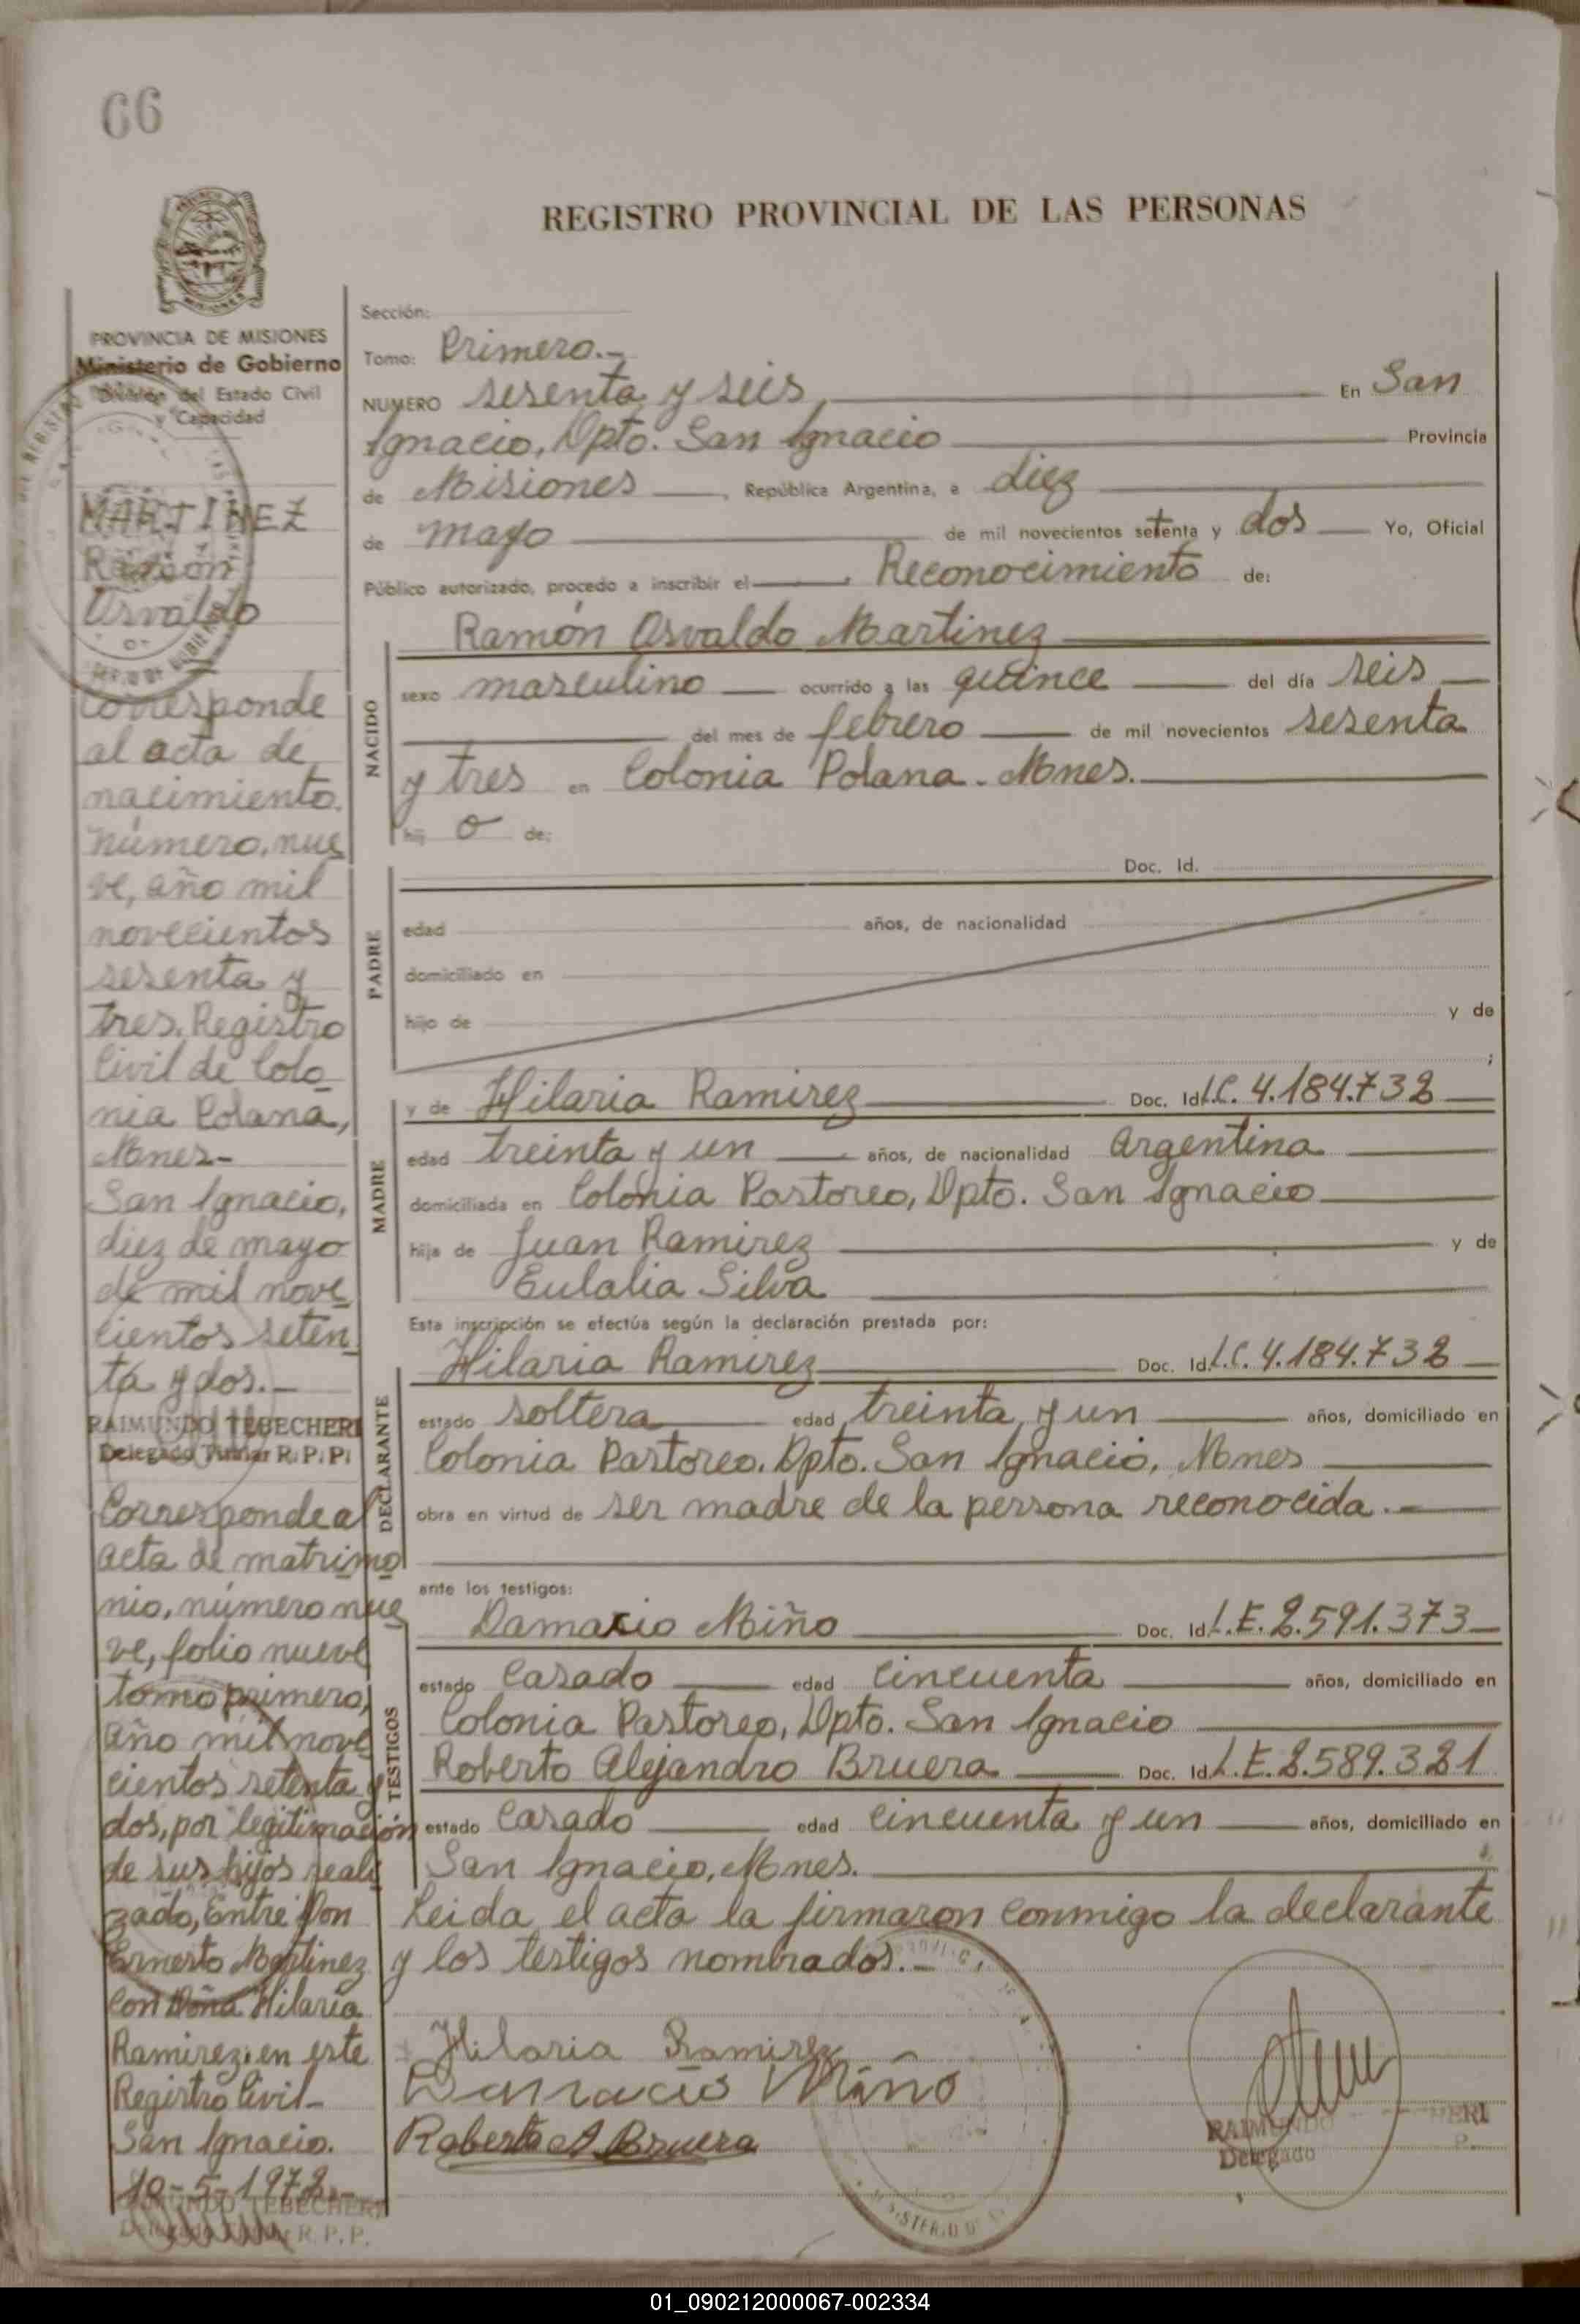 66
REGISTRO PROVINCIAL DE LAS PERSONAS
PROVINCIA DE MISIONES
Ministerio de Gobierno
División del Estado Civil
y Capacidad
MARTINEZ
Ramón
Osvaldo
Corresponde
al acta de
nacimiento.
número, nue
ve, año mil
novecientos
sesenta y
tres. Registro
Civil de Colo
nia Polana,
Mnes-
San Ignacio,
diez de mayo
de mil nove
cientos seten
ta y dos.-
RAIMUNDO TEBECHERI
Delegado Titular R.P.P.
Corresponde al
acta de matrimo
nio, número nue
ve, folio nueve
tomo primero,
año mil nove
cientos setenta y
dos, por legitimación
de sus hijos reali
zado, Entre Don
Ernesto Martinez
con Doña Hilaria
Ramirez, en este
Registro Civil-
San Ignacio.
10-5-1972.-
RAIMUNDO TEBECHERI
Delegado Titular R.P.P.
Sección:
Tomo: Primero.-
NUMERO sesenta y seis, En San
Ignacio, Dpto. San Ignacio Provincia
de Misiones, República Argentina, a diez
de mayo de mil novecientos setenta y dos Yo, Oficial
Público autorizado, procedo a inscribir el Reconocimiento de:
Ramón Osvaldo Martinez
NACIDO
sexo masculino ocurrido a las quince del día seis
del mes de febrero de mil novecientos sesenta
y tres en Colonia Polana - Mnes.
hij o de:
PADRE
Doc. Id.
edad años, de nacionalidad
domiciliado en
hijo de y de
;
MADRE
y de Hilaria Ramirez Doc. Id. L.C. 4.184.732
edad treinta y un años, de nacionalidad Argentina
domiciliada en Colonia Pastoreo, Dpto. San Ignacio
hija de Juan Ramirez y de
Eulalia Silva
Esta inscripción se efectúa según la declaración prestada por:
DECLARANTE
Hilaria Ramirez Doc. Id. L.C. 4.184.732
estado soltera edad treinta y un años, domiciliado en
Colonia Pastoreo. Dpto. San Ignacio, Mnes
obra en virtud de ser madre de la persona reconocida.-
ante los testigos:
TESTIGOS
Damacio Miño Doc. Id. L.E. 2.591.373
estado Casado edad cincuenta años, domiciliado en
Colonia Pastoreo, Dpto. San Ignacio
Roberto Alejandro Bruera Doc. Id. L.E. 2.589.321
estado Casado edad cincuenta y un años, domiciliado en
San Ignacio, Mnes.
Leida el acta la firmaron conmigo la declarante
y los testigos nombrados.-
Hilaria Ramirez
Damacio Miño
Roberto A Bruera
RAIMUNDO
Delegado
01_090212000067-002334